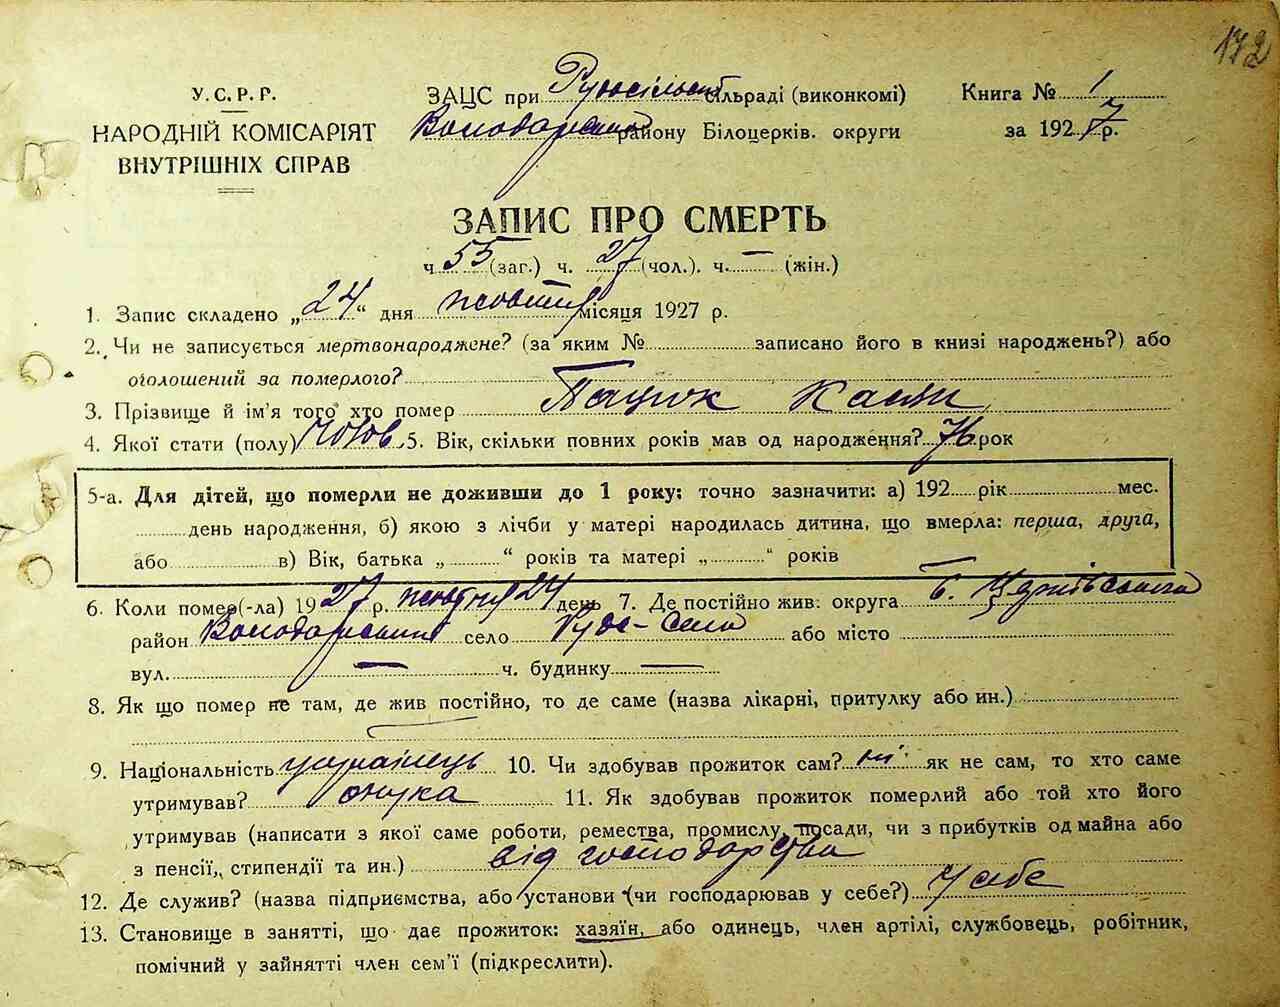 172
У.С.Р.Р.
НАРОДНІЙ КОМІСАРІЯТ
ВНУТРІШНІХ СПРАВ
ЗАЦС при сільраді (виконкомі)
Володарського району Білоцерків. округи
Книга № 1
за 1927 р.
ЗАПИС ПРО СМЕРТЬ
ч. 55 (заг.) ч. 27 (чол.). ч. — (жін.)
1. Запис складено „24“ дня жовтня місяця 1927 р.
2. Чи не записується мертвонароджене? (за яким № записано його в книзі народжень?) або
оголошений за померлого?
3. Прізвище й ім'я того хто помер
4. Якої стати (полу) чолов. 5. Вік, скільки повних років мав од народження? 76 рок
5-а. Для дітей, що померли не доживши до 1 року: точно зазначити: а) 192 рік мес.
день народження, б) якою з лічби у матері народилась дитина, що вмерла: перша, друга,
або в) Вік, батька „ “ років та матері „ “ років
6. Коли помер(-ла) 1927 р. жовтня 24 день 7. Де постійно жив: округа Б. Церківського
район Володарський село Рude-Село або місто
вул. — ч. будинку —
8. Як що помер не там, де жив постійно, то де саме (назва лікарні, притулку або ин.)
9. Національність українець 10. Чи здобував прожиток сам? ні як не сам, то хто саме
утримував? онука 11. Як здобував прожиток померлий або той хто його
утримував (написати з якої саме роботи, ремества, промислу, посади, чи з прибутків од майна або
з пенсії, стипендії та ин.) від господарства
12. Де служив? (назва підприємства, або установи (чи господарював у себе?) У себе
13. Становище в занятті, що дає прожиток: хазяїн, або одинець, член артілі, службовець, робітник,
помічний у зайнятті член сем'ї (підкреслити).